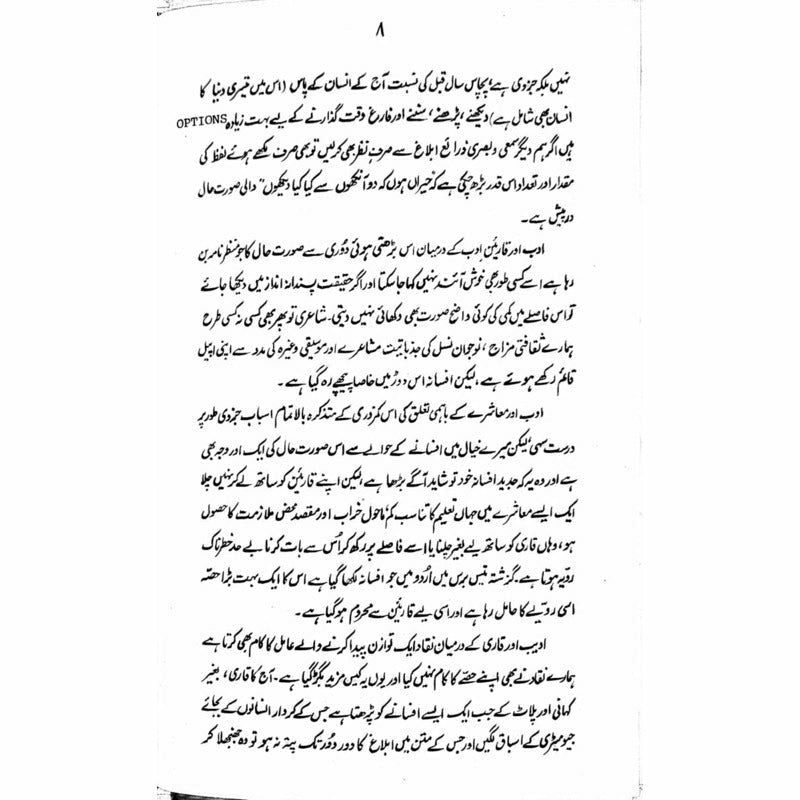 ۸
نہیں بلکہ جزوی ہے، پچاس سال قبل کی نسبت آج کے انسان کے پاس (اس میں تیسری دنیا کا
انسان بھی شامل ہے) دیکھنے، پڑھنے، سننے اور فارغ وقت گذارنے کے لیے بہت زیادہ OPTIONS
ہیں اگر ہم دیگر سمعی و بصری ذرائع ابلاغ سے صرفِ نظر بھی کر لیں تو بھی صرف لکھے ہوئے لفظ کی
مقدار اور تعداد اس قدر بڑھ چکی ہے کہ "حیراں ہوں کہ دو آنکھوں سے کیا کیا دیکھوں" والی صورت حال
درپیش ہے۔
ادب اور قارئینِ ادب کے درمیان اس بڑھتی ہوئی دُوری سے صورت حال کا جو منظر نامہ بن
رہا ہے اسے کسی طور بھی خوش آئند نہیں کہا جا سکتا اور اگر حقیقت پسندانہ انداز میں دیکھا جائے
تو اس فاصلے میں کمی کی کوئی واضح صورت بھی دکھائی نہیں دیتی۔ شاعری تو پھر بھی کسی نہ کسی طرح
ہمارے ثقافتی مزاج، نوجوان نسل کی جذباتیت مشاعرے اور موسیقی وغیرہ کی مدد سے اپنی اپیل
قائم رکھے ہوئے ہے، لیکن افسانہ اس دوڑ میں خاصا پیچھے رہ گیا ہے۔
ادب اور معاشرے کے باہمی تعلق کی اس کمزوری کے متذکرہ بالا تمام اسباب جزوی طور پر
درست سہی، لیکن میرے خیال میں افسانے کے حوالے سے اس صورت حال کی ایک اور وجہ بھی
ہے اور وہ یہ کہ جدید افسانہ خود تو شاید آگے بڑھا ہے، لیکن اپنے قارئین کو ساتھ لے کر نہیں چلا
ایک ایسے معاشرے میں جہاں تعلیم کا تناسب کم، ماحول خراب اور مقصد محض ملازمت کا حصول
ہو، وہاں قاری کو ساتھ لیے بغیر چلنا یا اسے فاصلے پر رکھ کر اُس سے بات کرنا بے حد خطرناک
رویہ ہوتا ہے۔ گزشتہ تیس برس میں اُردو میں جو افسانہ لکھا گیا ہے اس کا ایک بہت بڑا حصّہ
اسی رویّے کا حامل رہا ہے اور اسی لیے قارئین سے محروم ہو گیا ہے۔
ادیب اور قاری کے درمیان نقاد ایک توازن پیدا کرنے والے عامل کا کام بھی کرتا ہے
ہمارے نقاد نے بھی اپنے حصّے کا کام نہیں کیا اور یوں یہ کیس مزید بگڑ گیا ہے۔ آج کا قاری، بغیر
کہانی اور پلاٹ کے جب ایک ایسے افسانے کو پڑھتا ہے جس کے کردار انسانوں کے بجائے
جیومیٹری کے اسباق لگیں اور جس کے متن میں ابلاغ کا دور دُور تک پتہ نہ ہو تو وہ جھنجھلا کر